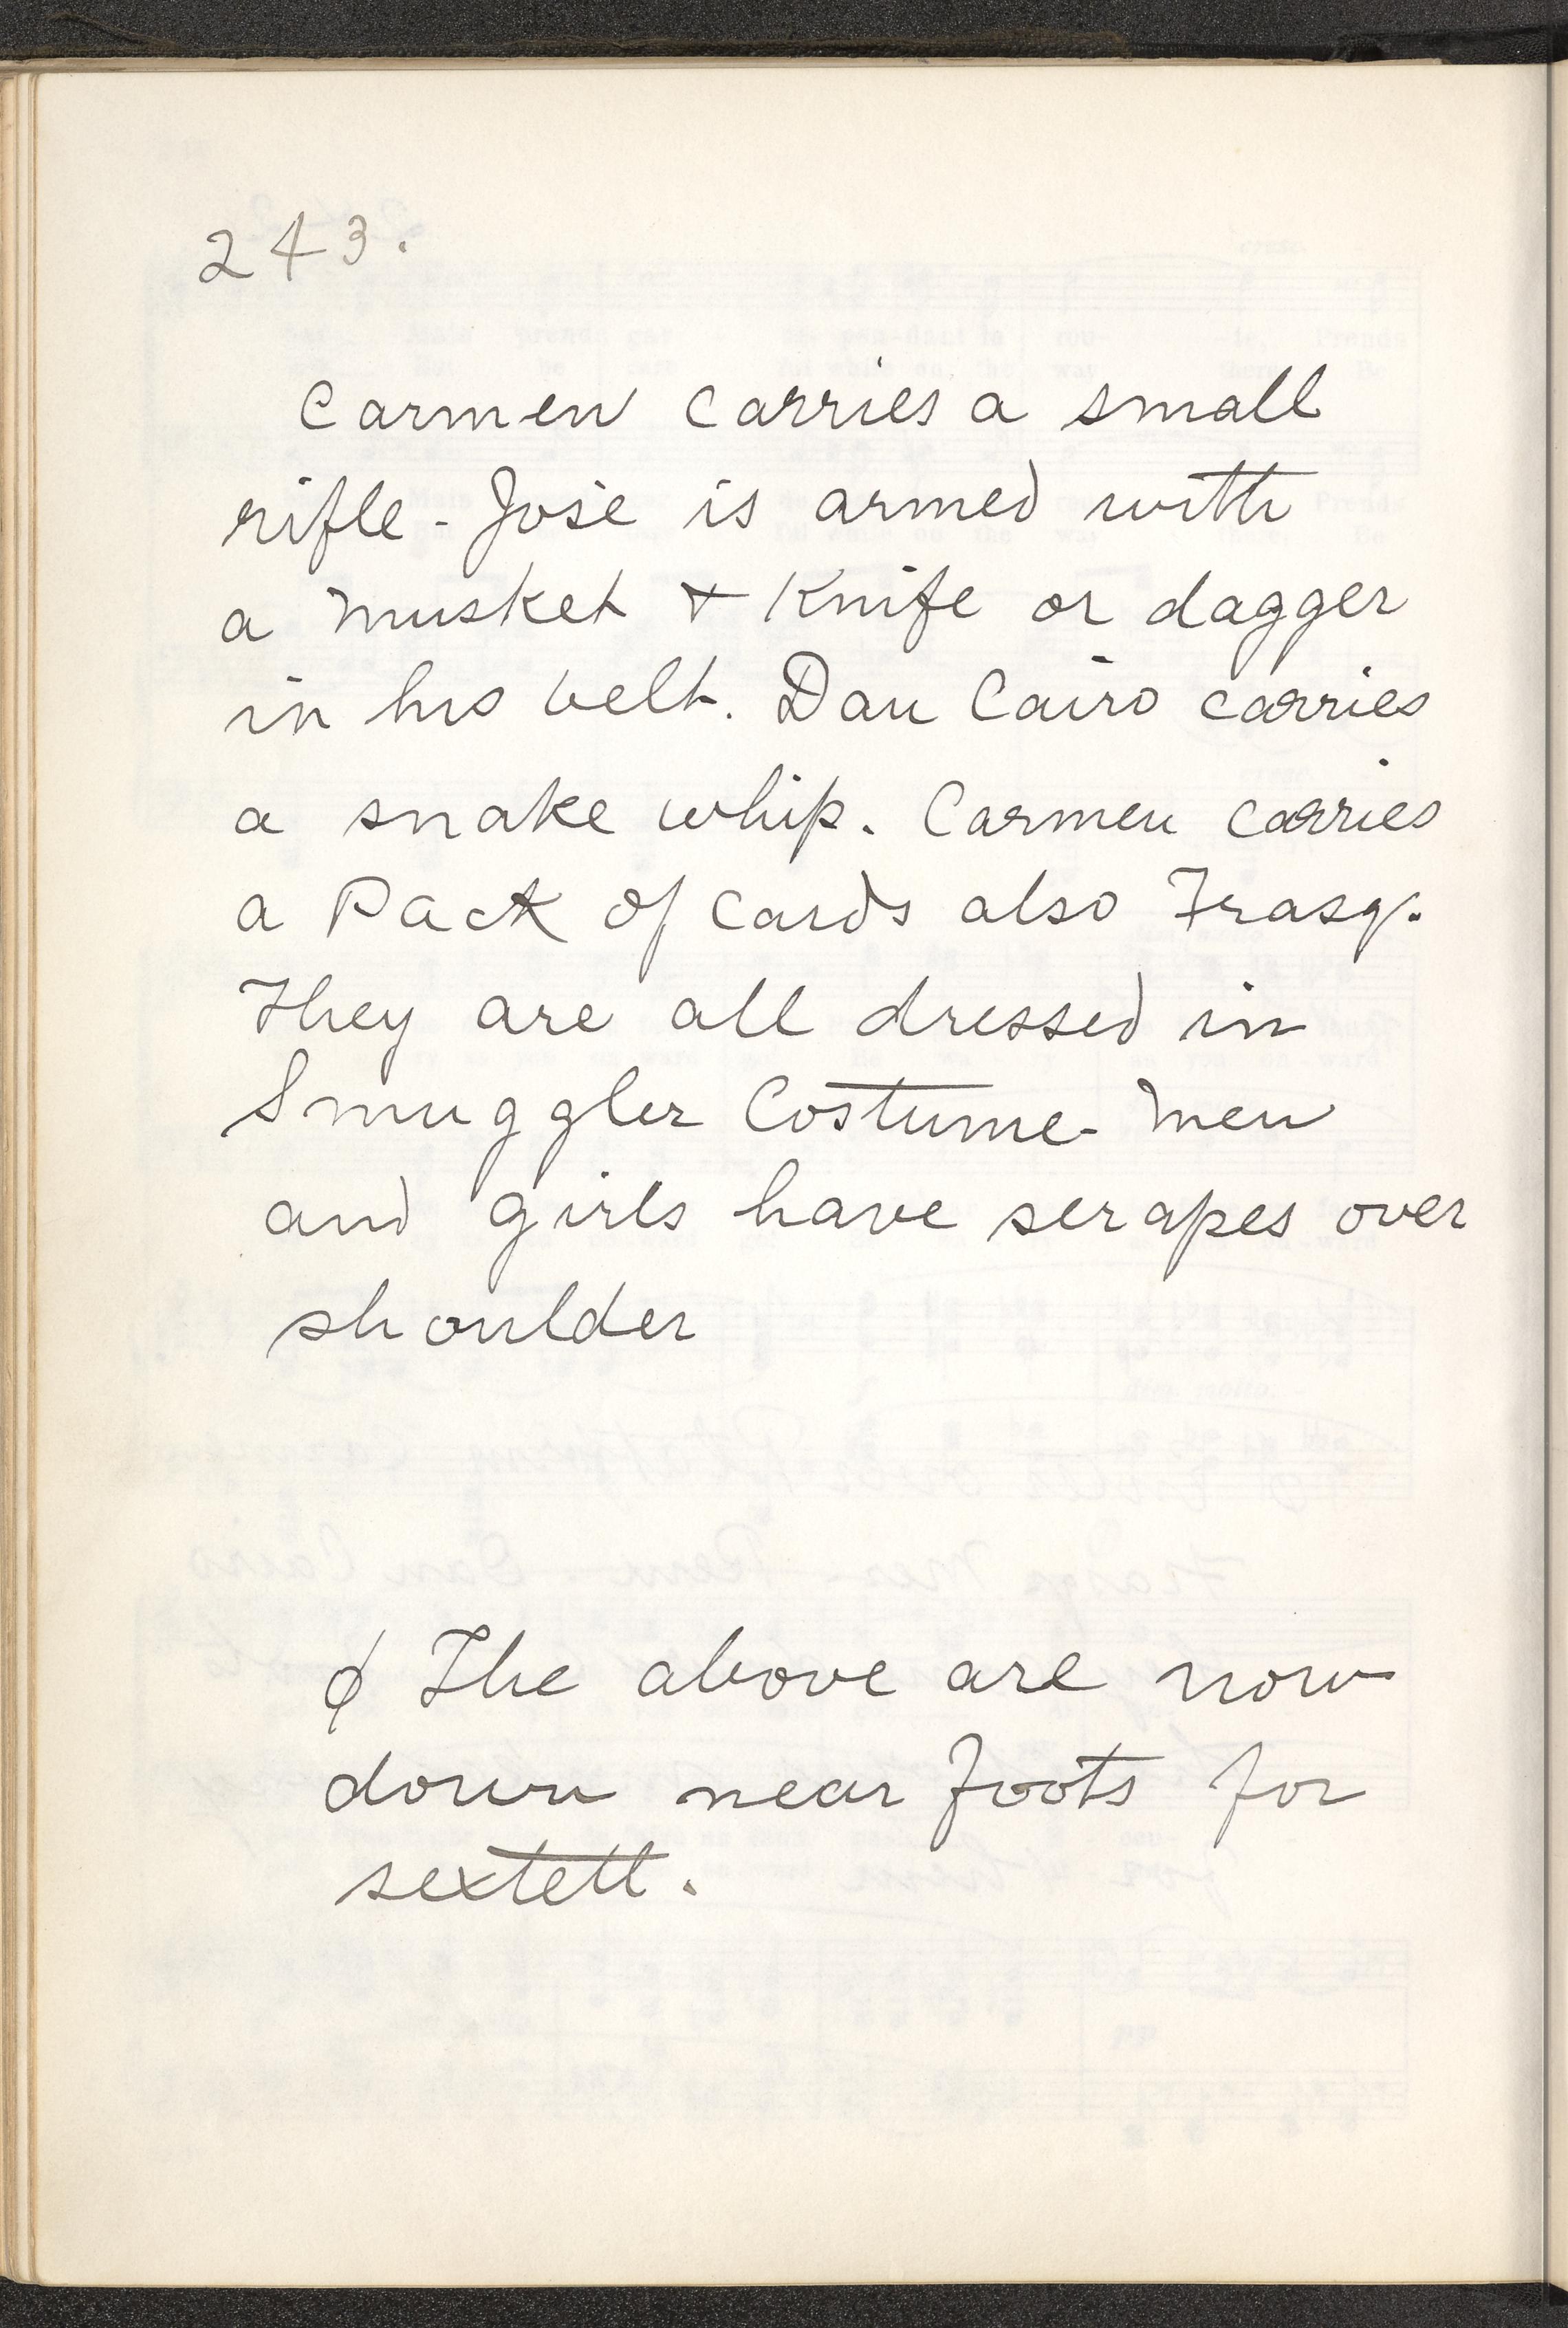 243.
Carmen carries a small
rifle - José is armed with
a musket & Knife or dagger
in his belt. Dan Cairo carries
a snake whip. Carmen carries
a Pack of cards also Frasq.
They are all dressed in
Smuggler Costume - Men
and girls have serapes over
shoulder
ϕ The above are now
down near foots for
sextett.